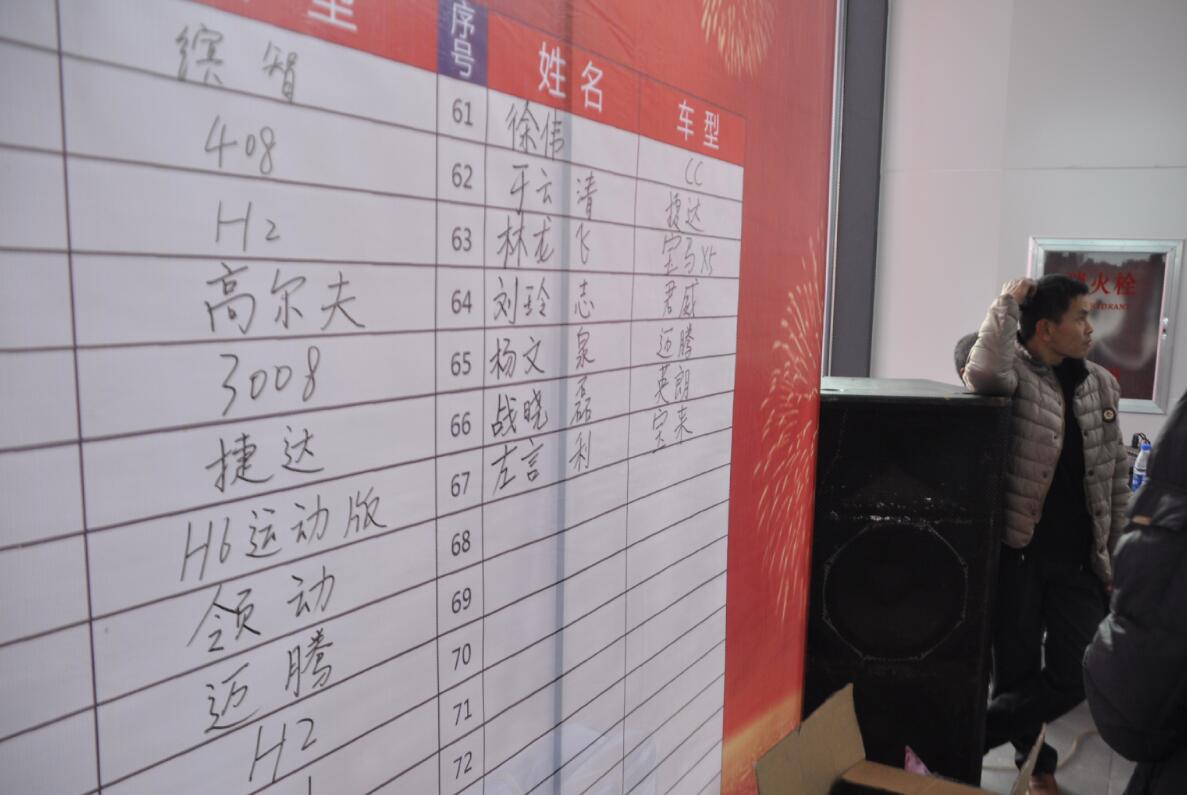 型 序号 姓名 车型
缤智 61 徐伟 CC
408 62 于云清 捷达
H2 63 林龙飞 宝马X5
高尔夫 64 刘玲志 君威
3008 65 杨文泉 迈腾
捷达 66 战晓磊 英朗
H6运动版 67 左言利 宝来
领动 68
迈腾 69
H2 70
71
72
消火栓